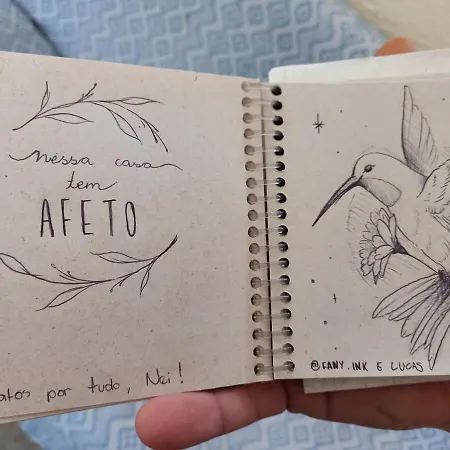 Nessa casa
tem
AFETO
atos por tudo, Nei!
@FANY.INK E LUCAS